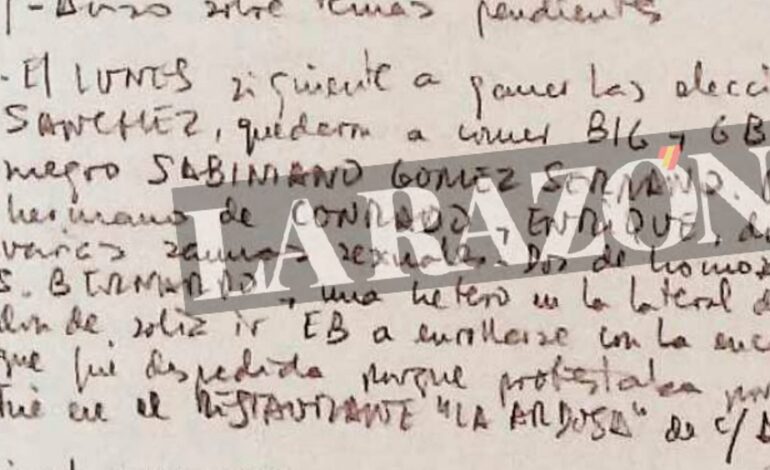 1- Buzo sobre temas pendientes
- El LUNES siguiente a ganar las elecci
SANCHEZ, quedaron a comer BIG y GB
negro SABINIANO GOMEZ SERRANO.
hermano de CONRADO y ENRIQUE, d
varias saunas sexuales. Dos de homos
S. BERNARDO y una hetero en la lateral d
donde solía ir EB a enrollarse con la enc
que fue despedida porque protestaba por
Fue en el RESTAURANTE "LA ARDOSA" de C/
LA RAZÓN